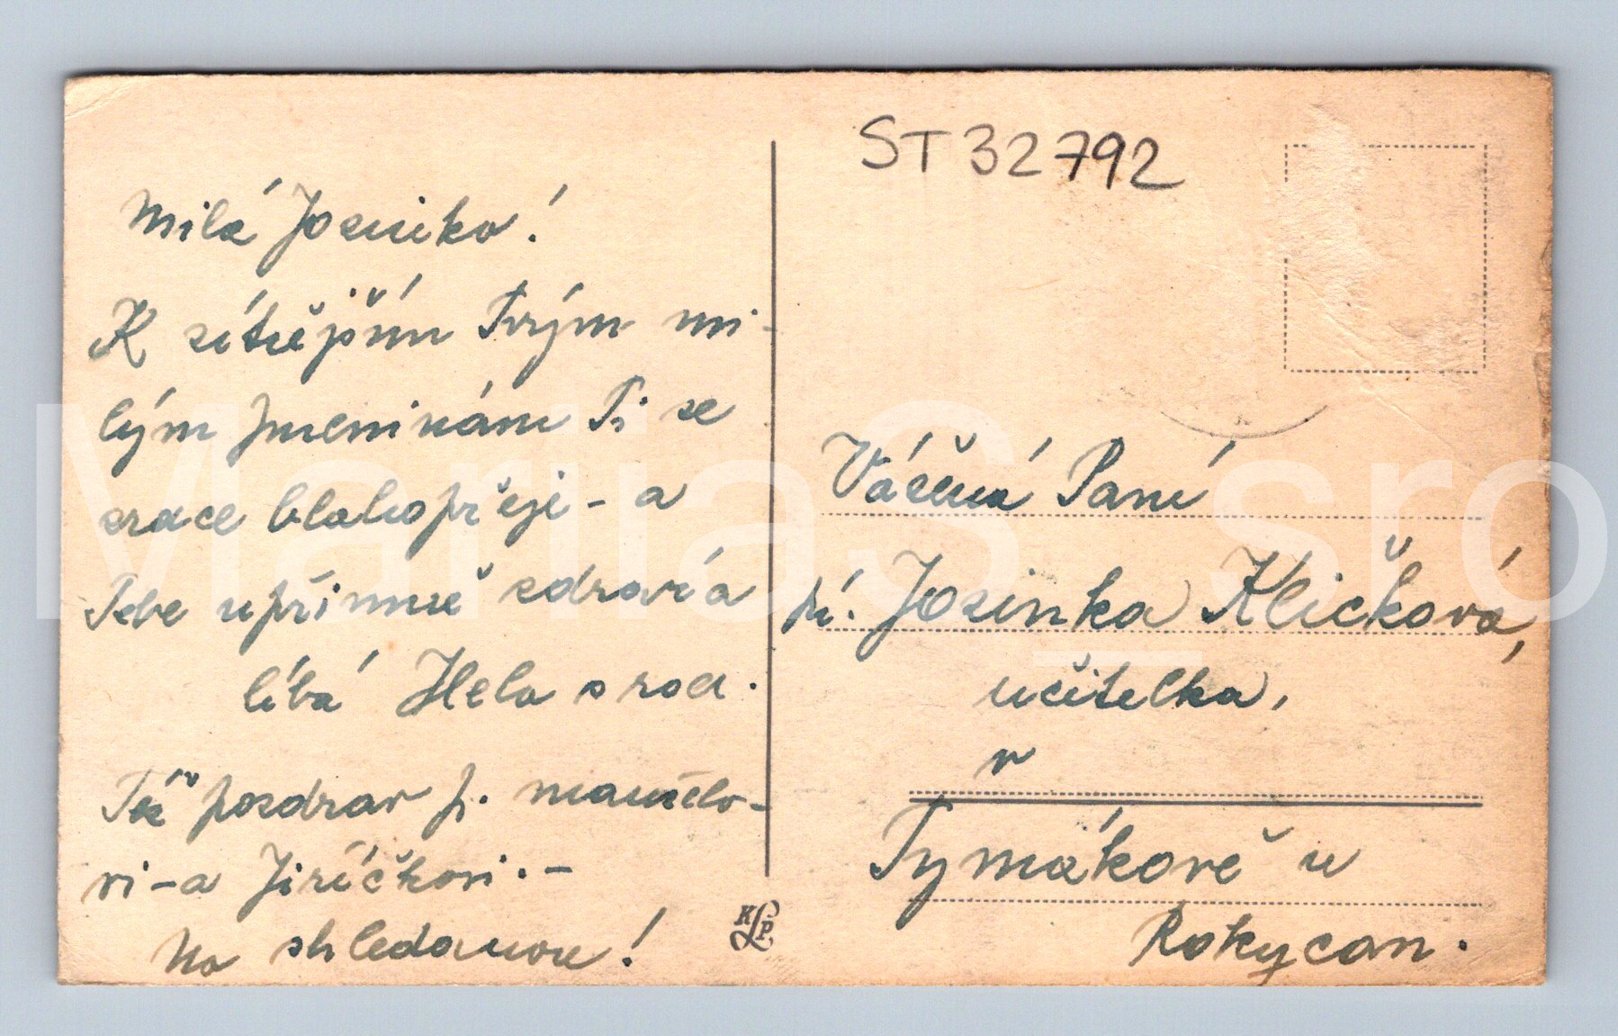 Milá Josinko!
K zítřejším Tvým mi-
lým jmeninám Ti se
srdce blahopřeji - a
Tebe upřímně zdraví a
líbá Hela s rod.
Též pozdrav p. manželo-
vi - a Jiříčkovi. -
Na shledanou!
KLP
ST32792
Vážená Paní
pí. Josinka Kličková,
učitelka,
v
Tymákově u
Rokycan.
MariiaS_sro